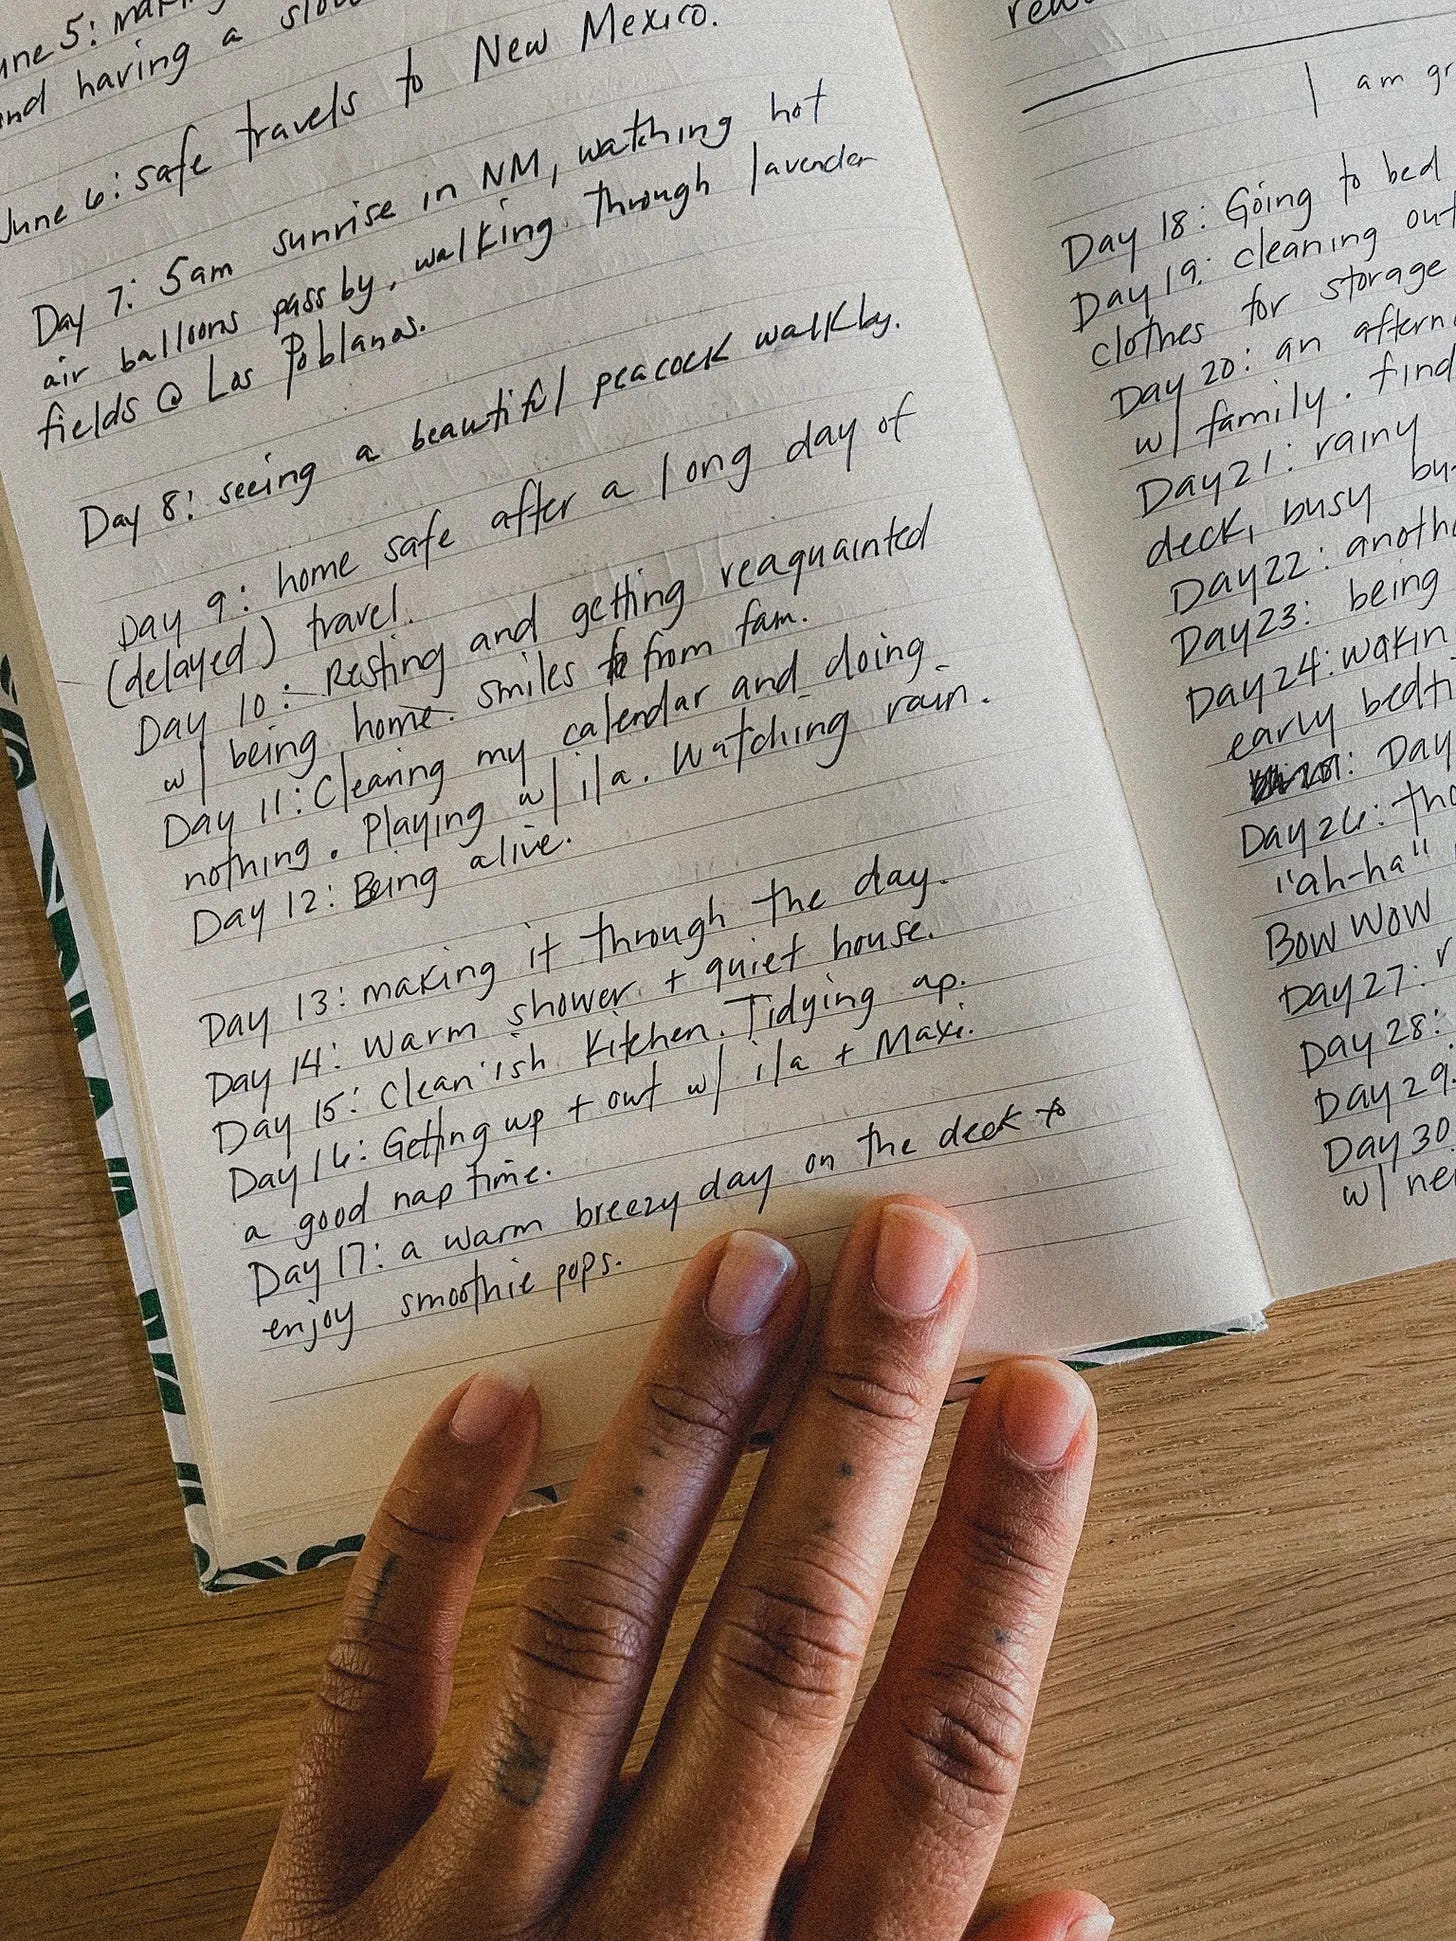 June 5:
and having a
June 6: safe travels to New Mexico.
Day 7: 5am sunrise in NM, watching hot
air balloons pass by, walking through lavender
fields @ Los Poblanos.
Day 8: seeing a beautiful peacock walk by.
Day 9: home safe after a long day of
(delayed) travel.
Day 10: Resting and getting reaquainted
w/ being home. smiles from fam.
Day 11: Clearing my calendar and doing
nothing. Playing w/ ila. Watching rain.
Day 12: Being alive.
Day 13: making it through the day.
Day 14: Warm shower + quiet house.
Day 15: Clean'ish Kitchen. Tidying up.
Day 16: Getting up + out w/ ila + Maxi.
a good nap time.
Day 17: a warm breezy day on the deck to
enjoy smoothie pops.
I am
Day 18: Going to bed
Day 19: cleaning
clothes for storage
Day 20: an
w/ family.
Day 21: rainy
deck, busy
Day 22:
Day 23: being
Day 24:
early
Day
Day 26:
"ah-ha"
BOW WOW
Day 27:
Day 28:
Day 29:
Day 30
w/